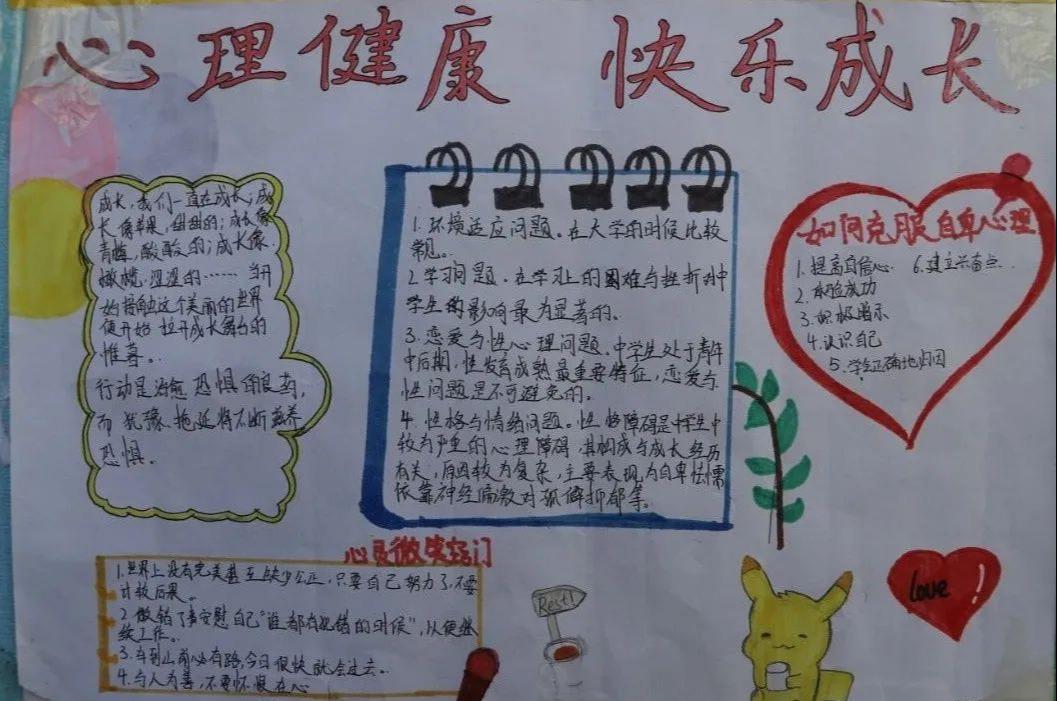 心理健康 快乐成长
成长,我们一直在成长;成
长像苹果,甜甜的;成长像
青梅,酸酸的;成长像
橄榄,涩涩的……当开
始接触这个美丽的世界
便开始拉开成长舞台的
帷幕。
行动是治愈恐惧的良药,
而犹豫、拖延将不断滋养
恐惧.
1.环境适应问题。在大学的时候比较
常见。
2.学习问题。在学习上的困难与挫折对中
学生的影响最为显著的。
3.恋爱与性心理问题。中学生处于青年
中后期,性发育成熟最重要特征,恋爱与
性问题是不可避免的。
4.性格与情绪问题。性格障碍是中学生中
较为严重的心理障碍,其构成与成长经历
有关,原因较为复杂,主要表现为自卑怯懦
依靠神经偏激对孤僻抑郁等。
如何克服自卑心理
1.提高自信心. 6.建立兴奋点.
2.体验成功
3.积极暗示
4.认识自己
5.学会正确地归因
心灵微笑窍门
1.世界上没有完美甚至缺少公正,只要自己努力了,不要
计较后果。
2.做错了事安慰自己“谁都有犯错的时候”,以便继
续工作。
3.车到山前必有路,今日很快就会过去。
4.与人为善,不要怀恨在心
Rest!
love